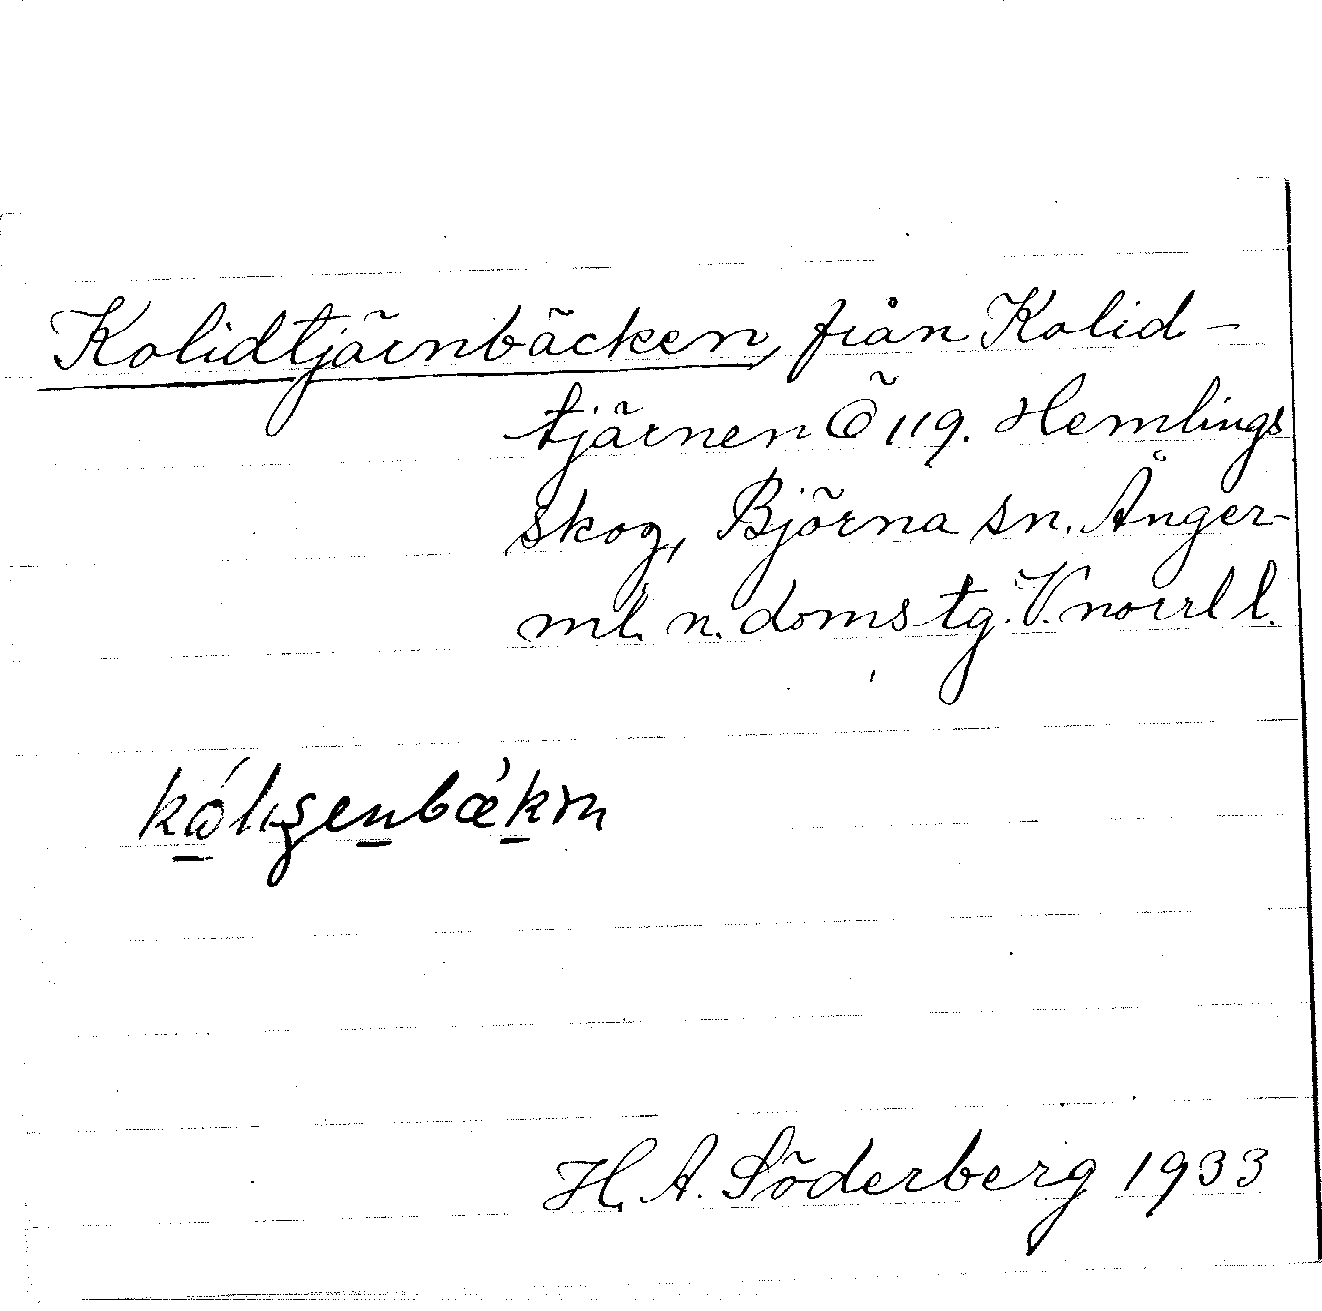 Kolidtjärnbäcken, från Kolid-
tjärnen Ö 119. Hemlings
skog, Björna sn. Ånger-
ml. n. doms tg. V. norrl l.
H. A. Söderberg 1933